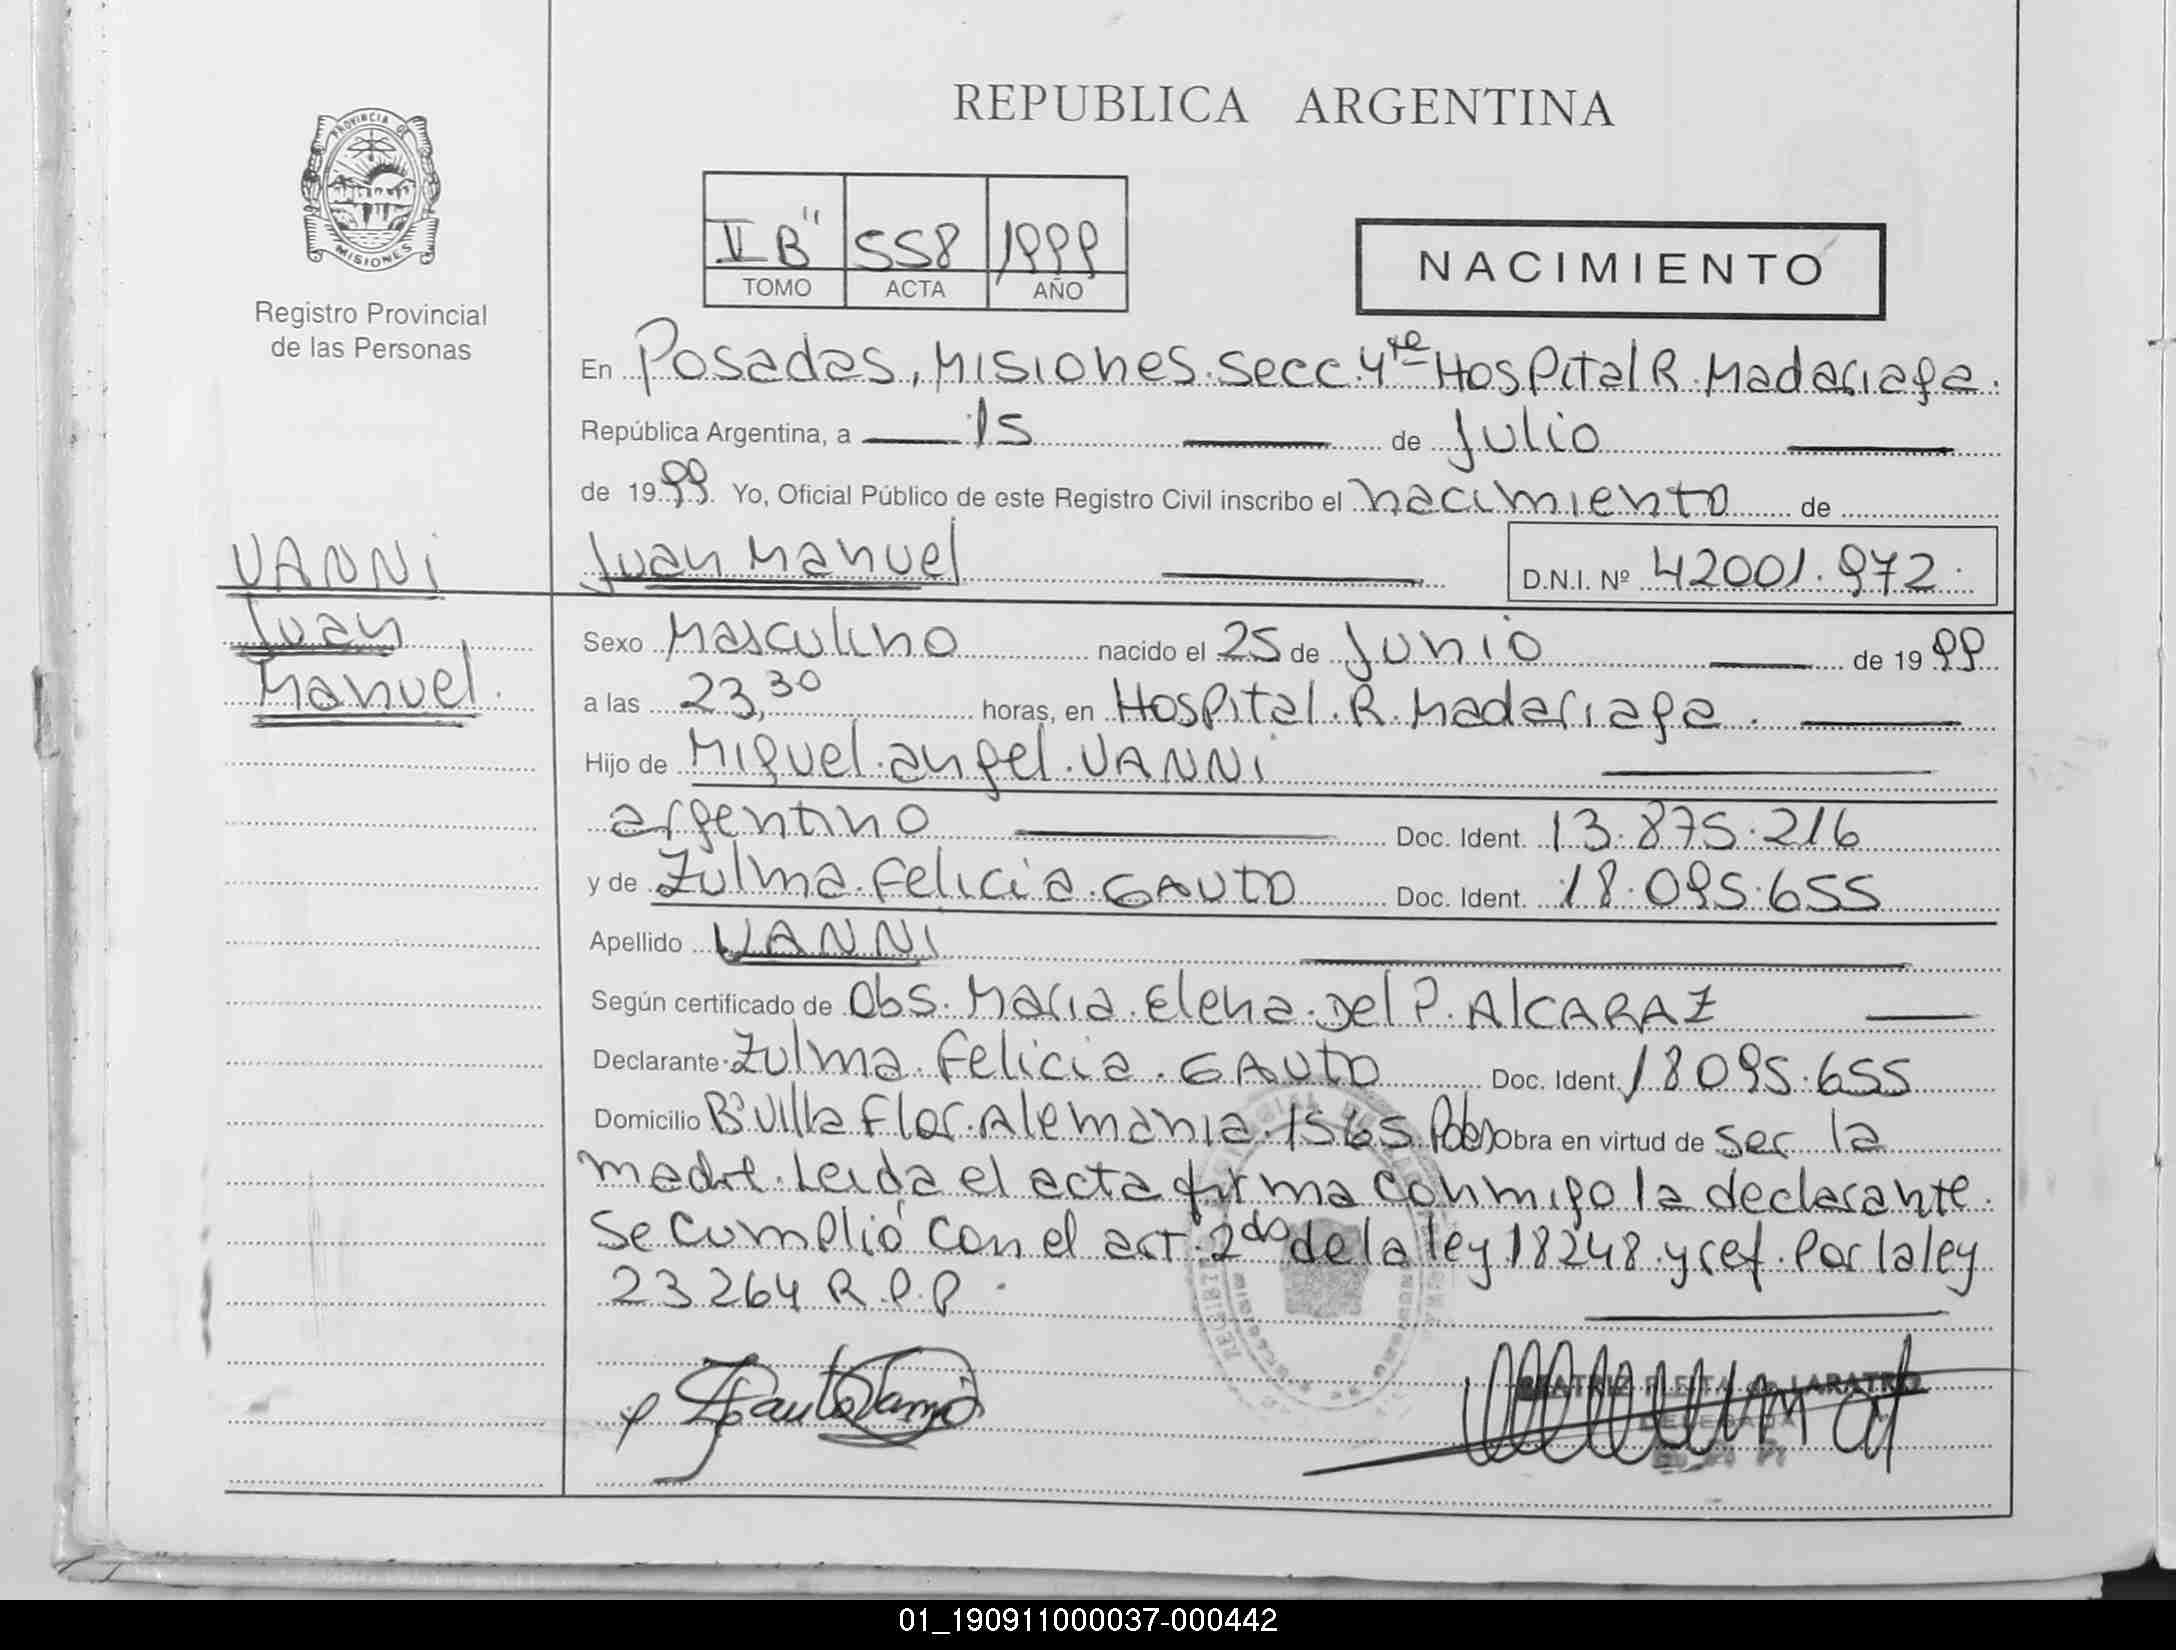 REPUBLICA ARGENTINA
PROVINCIA DE
MISIONES
Registro Provincial
de las Personas
II B" 558 1999
TOMO ACTA AÑO
NACIMIENTO
En Posadas, Misiones. Secc. 4ta Hospital R. Madariaga.
República Argentina, a 15 de Julio
de 1999 Yo, Oficial Público de este Registro Civil inscribo el nacimiento de
VANNI
Juan
Manuel.
Juan Manuel D.N.I. Nº 42001.972.
Sexo Masculino nacido el 25 de Junio de 1999
a las 23,30 horas, en Hospital. R. Madariaga.
Hijo de Miguel. angel. VANNI
argentino Doc. Ident. 13.875.216
y de Zulma. Felicia. GAUTO Doc. Ident. 18.095.655
Apellido VANNI
Según certificado de Obs. Maria. Elena. Del P. AlCARAZ
Declarante Zulma. Felicia. GAUTO Doc. Ident. 18095.655
Domicilio Bº Villa Flor. Alemania. 1565 Pdas Obra en virtud de ser la
madre. Leida el acta firma conmigo la declarante.
Se cumplió con el art. 2do de la ley 18248. y ref. Por la ley
23264 R.P.P.
BEATRIZ
DELEGADA
01_190911000037-000442